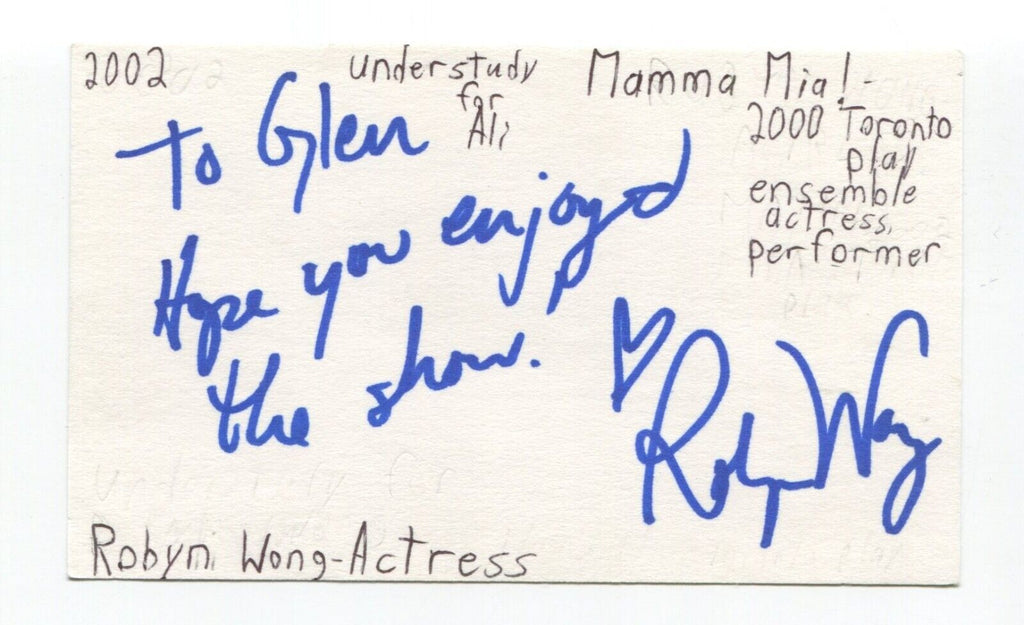 2002
understudy
for
Ali
Mamma Mia! -
2000 Toronto
play
ensemble
actress,
performer
To Glen
Hope you enjoyed
the show.
♡ Robyn Wong
Robyn Wong-Actress